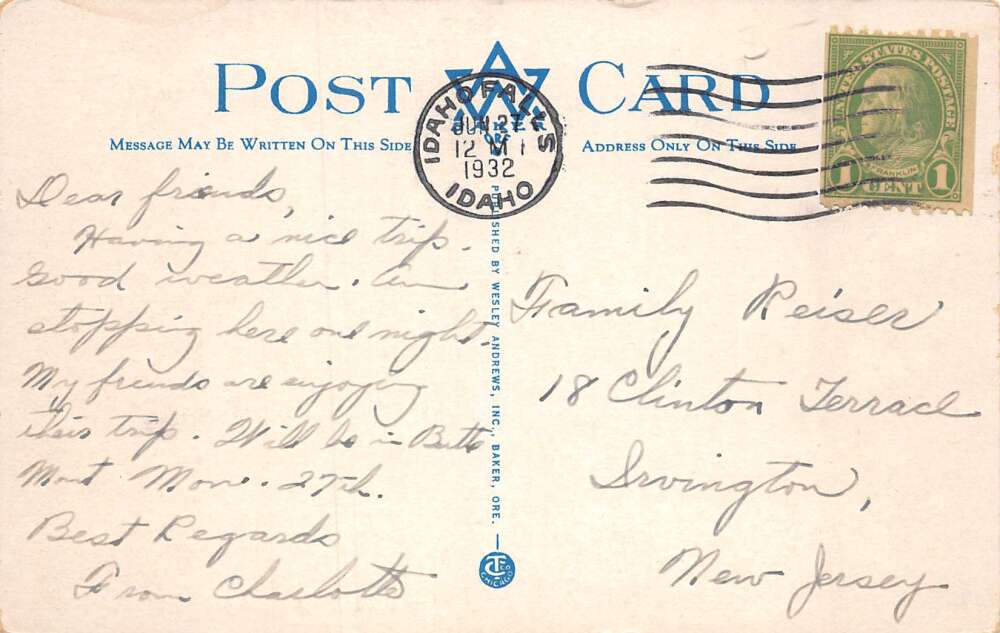 POST CARD
MESSAGE MAY BE WRITTEN ON THIS SIDE
ADDRESS ONLY ON THIS SIDE
IDAHO FALLS
JUN 27
12 M
1932
IDAHO
UNITED STATES POSTAGE
FRANKLIN
1 CENT 1
Dear friends,
Having a nice trip.
Good weather. Am
stopping here one night.
My friends are enjoying
this trip. Will be in Butte
Mont Mon. 27th.
Best Regards
From Charlotte
PUBLISHED BY WESLEY ANDREWS, INC., BAKER, ORE.
CHICAGO
Family Reiser
18 Clinton Terrace
Irvington,
New Jersey